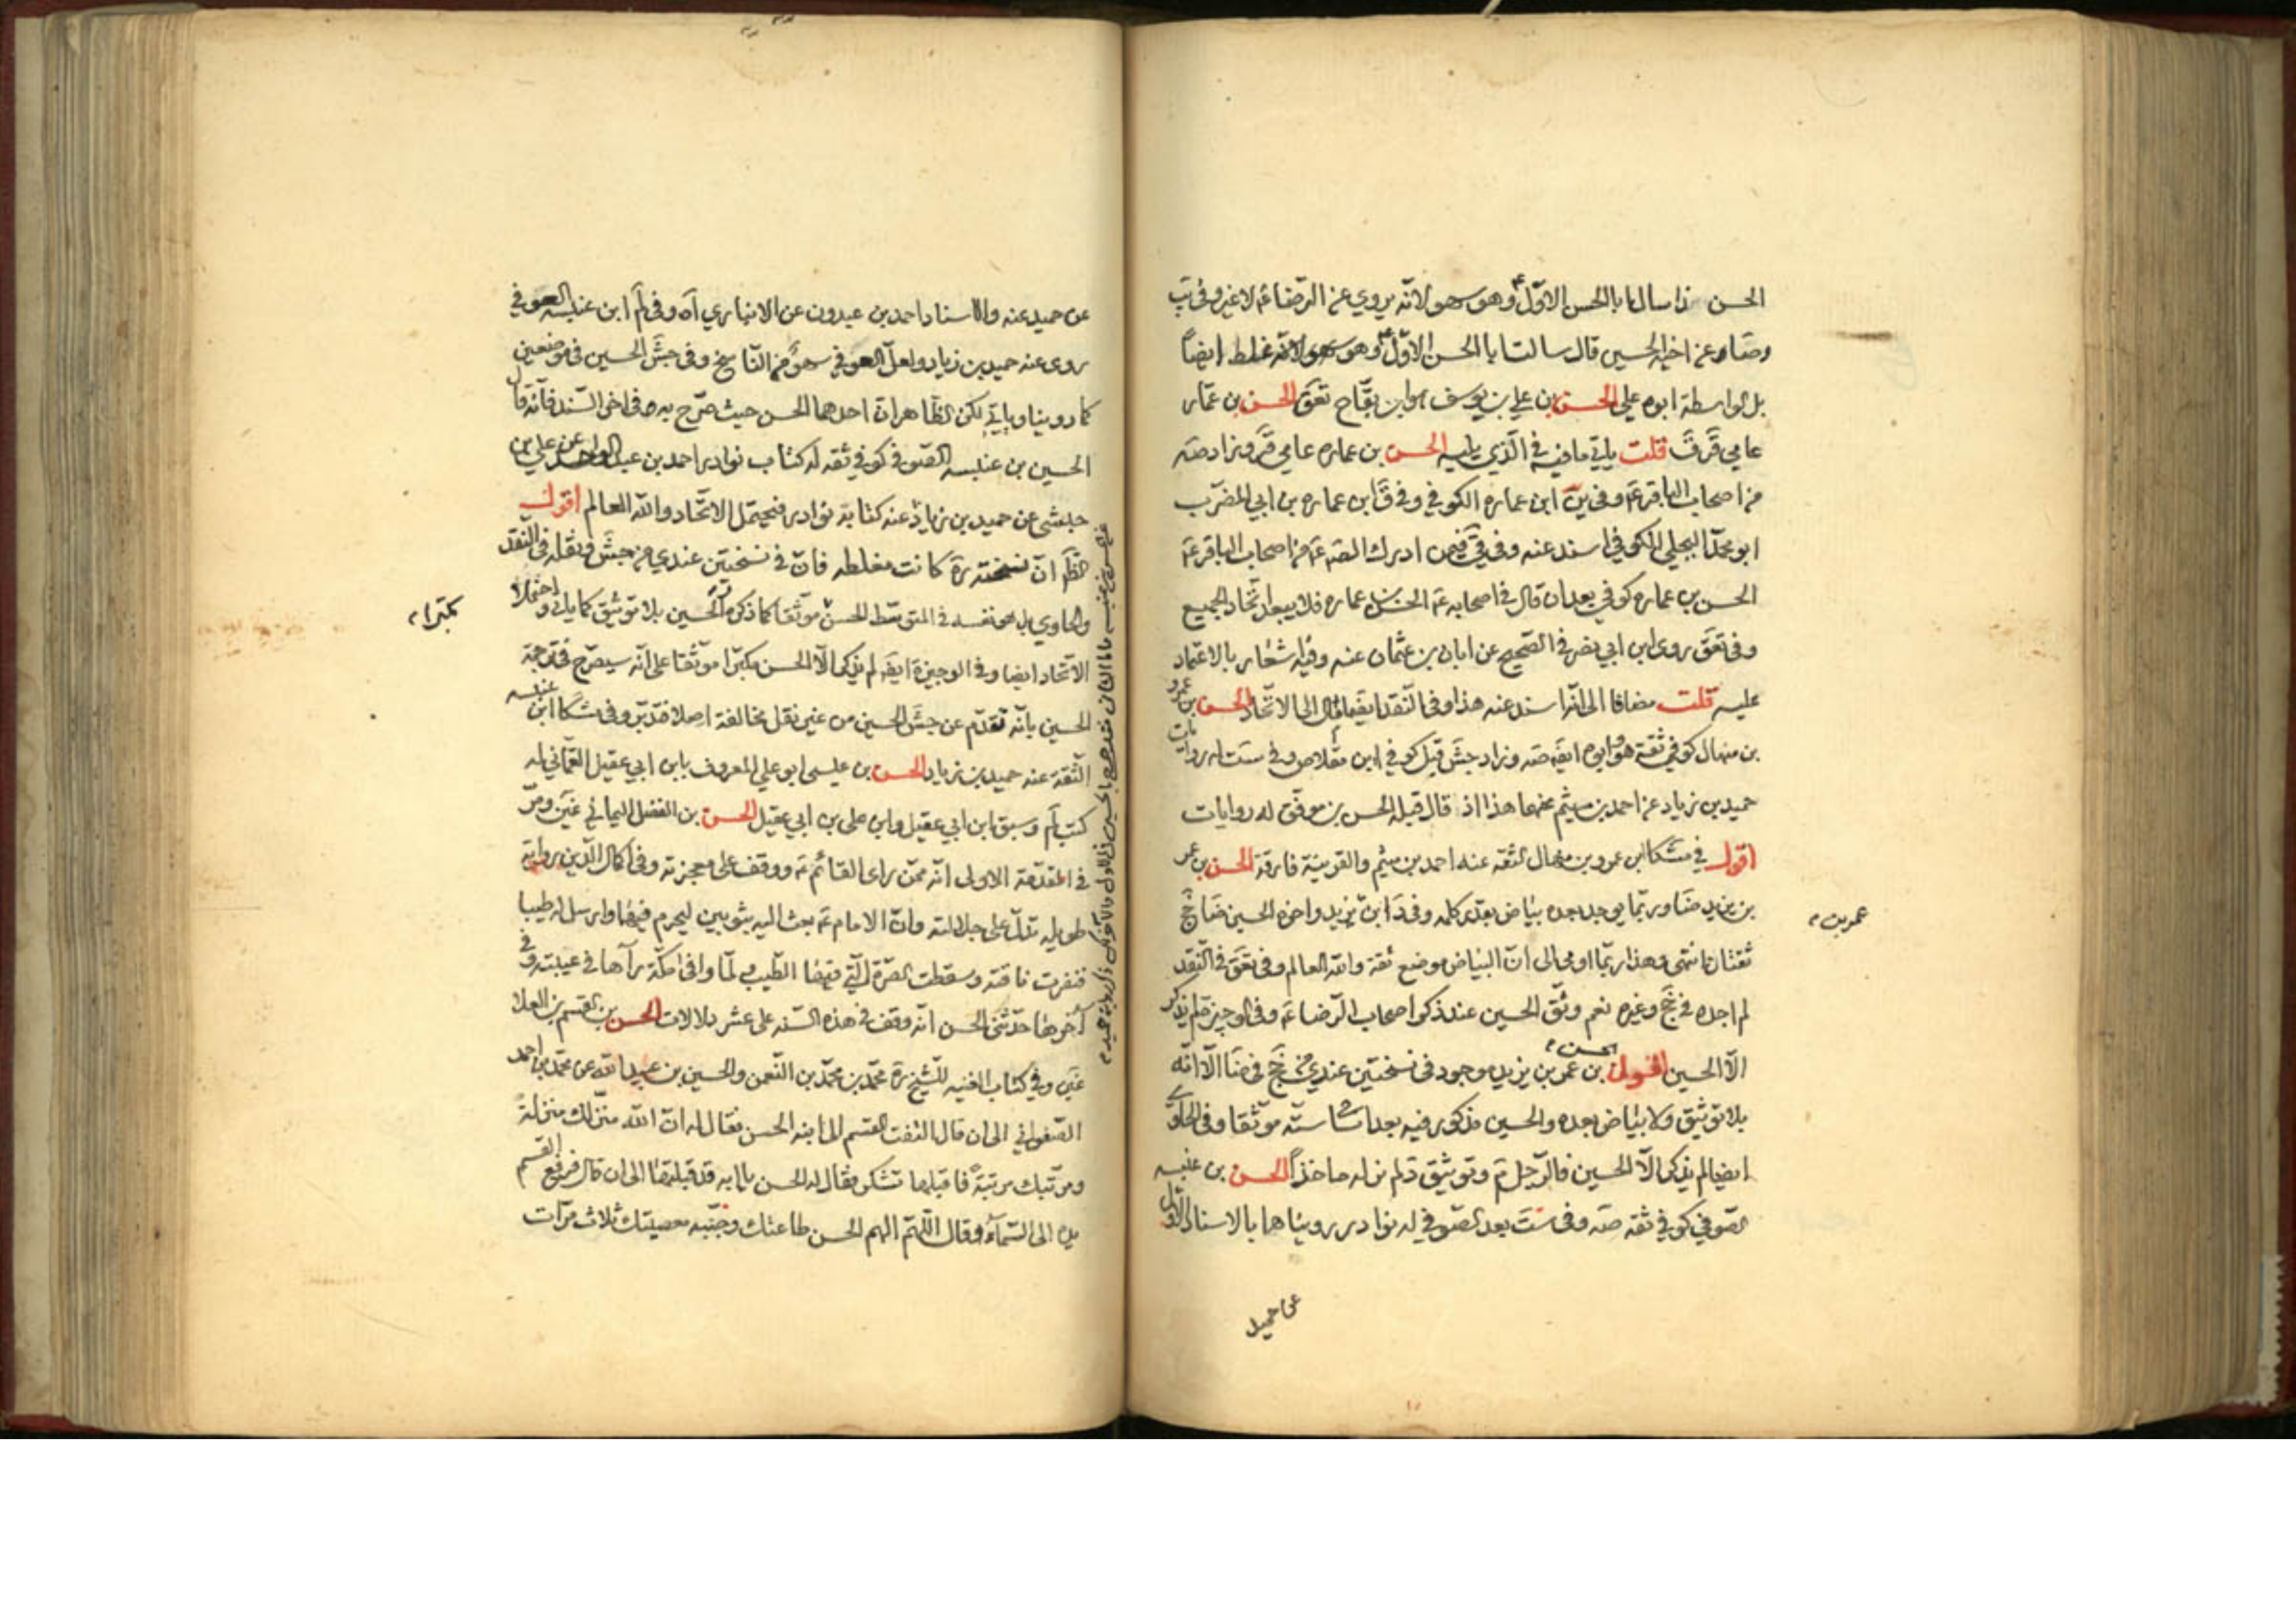 الحسن ذا سال ابا الحسن الاوّل ع وهو سهو لانّه يروي عن الرضا ع لا غير وفي تب
وضا وعن اخيه الحسين قال سالت ابا الحسن الاوّل ع وهو سهو لانّه غلط ايضاً
بل الواسطة ابوه علي الحسن بن علي بن يوسف هو ابن بقّاح تعق الحسن بن عمّار
عامي قر ق قلت ياتي ما فيه في الّذي يليه الحسن بن عماره عامي قر وزاد صه
من اصحاب الباقر ع وفي ين ابن عماره الكوفي وفي ق ابن عماره بن ابي المضرّب
ابو محمّد البجلي الكوفي اسند عنه وفي قي فيمن ادرك الصه ع من اصحاب الباقر ع
الحسن بن عماره كوفي بعد ان قال في اصحابه ع الحسن بن عماره فلا يبعد اتّحاد الجميع
وفي تعق روى ابن ابي نصر في الصّحيح عن ابان بن عثمان عنه وفيه اشعار بالاعتماد
عليه قلت مضافا الى انّه اسند عنه هذا وفي النّقد ايضا مال الى الاتّحاد الحسن بن عمرو
بن منهال كوفي ثقة هو وابوه ايضه صه وزاد جش قبل كوفي ابن مقلاص وفي ست له روايات
حميد بن زياد عن احمد بن ميثم عنها هذا اذ قال قبله الحسن بن موفّق له روايات
اقول في مشكا ابن عمرو بن منهال الثقه عنه احمد بن ميثم والقرينة فارقة الحسن بن عمر
بن يزيد ضا وربّما يوجد بعده بياض بعدّ كلمه وفي د ابن يزيد واخوه الحسين ضا جخ
ثقتان انتهى وهذا ربّما اومى الى انّ البياض موضع ثقة والله العالم وفي تعق في النّقد
لم اجده في جخ وغيره نعم وثّق الحسين عند ذكر اصحاب الرّضا ع وفي الوجيزه لم يذكر
الّا الحسين اقول الحسن بن عمر بن يزيد موجود في نسختين عندي من جخ في ضا الّا انّه
بلا توثيق ولا بياض بعده والحسين مذكور فيه بعد اسماء ستّه موثّقا وفي الحاوي
ايضا لم يذكر الّا الحسين فالرّجل م وتوثيق د لم نر له ماخذاً الحسن بن عنبسه
الصّوفي كوفي ثقه صه وفي ست بعد الصّوفي له نوادر رويناهما بالاسناد الاوّل
عن حميد
عمر بن
عن حميد عنه والاسناد احمد بن عبدون عن الانباري آه وفي لم ابن عنبسه الصوفي
روى عنه حميد بن زياد ولعلّ العوفي سهو من النّاسخ وفي جش الحسين في موضعين
كما روينا وياتي لكن الظّاهر انّ احدهما الحسن حيث صرّح به صه في اخر السّند فانّه قال
الحسين بن عنبسه الصّوفي كوفي ثقه له كتاب نوادر احمد بن عبد الواحد عن علي بن
حبشي عن حميد بن زياد عنه كتابه نوادر فيحتمل الاتّحاد والله العالم اقول
الظّه انّ نسخته ره كانت مغلطه فانّ في نسختين عندي من جش ونقله في النّقد
والحاوي بل هو نفسه في المتوسّط الحسن موثّقا كما ذكره الحسين بلا توثيق كما ياتي واحتمال
الاتّحاد ايضا وفي الوجيزة ايضه لم يذكر الّا الحسن مكبّرا موثّقا على انّه سيصرّح في ترجمة
الحسين بانّه تقدّم عن جش الحسن من غير نقل مخالفة اصلا فتدبّر وفي مشكا ابن عنبسه
الثّقة عنه حميد بن زياد الحسن بن عيسى ابو علي المعروف بابن ابي عقيل العمّاني له
كتب لم وسبق ابن ابي عقيل وابن علي بن ابي عقيل الحسن بن الفضل اليماني غين ومرّ
في المقدّمة الاولى انّه ممّن راى القائم ع ووقف على معجزته وفي اكمال الدّين رواية
طويله تدلّ على جلالته وانّ الامام ع بعث اليه بثوبين ليحرم فيهما وارسل له طيبا
فنفرت ناقته وسقطت الصّرة الّتي فيها الطّيب لمّا وافى مكّة رآها في عيبته وفي
آخرها حدّثني الحسن انّه وقف في هذه السّنه على عشر دلالات الحسن بن القسم بن العلا
غين وفي كتاب الغيبه للشّيخ ره محمّد بن محمّد بن النّعمن والحسين بن عبيد الله عن محمّد بن احمد
الصّفواني الى ان قال التفت القسم الى ابنه الحسن فقال له انّ الله منزّلك منزلة
ومرتّبك مرتبةً فاقبلها بشكر فقال له الحسن يا ابه قد قبلتها الى ان قال فرفع القسم
يده الى السّماء وقال اللّهمّ الهم الحسن طاعتك وجنّبه معصيتك ثلاث مرّات
مكبّرا